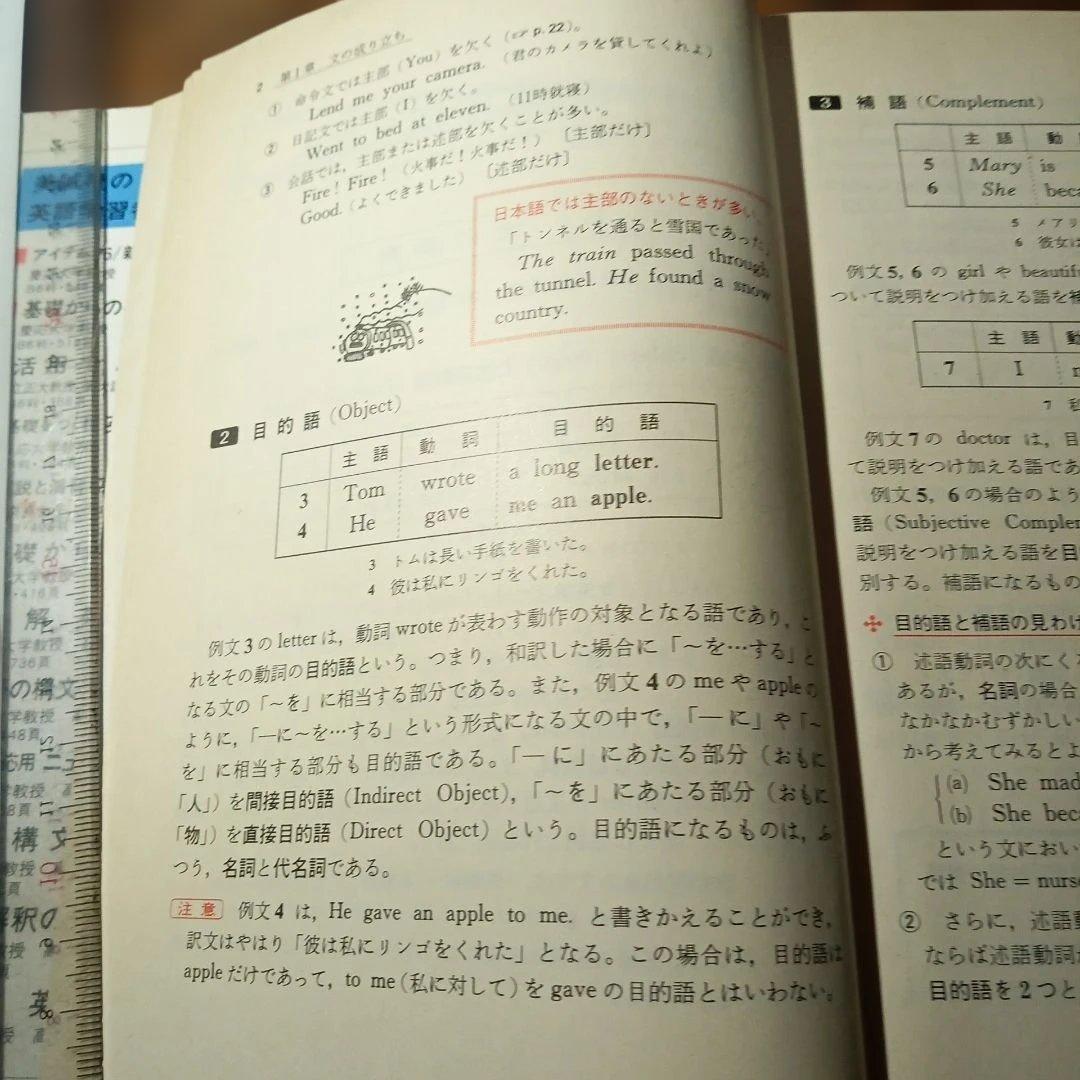 2 第1章 文の成り立ち
① 命令文では主部（You）を欠く（☞ p.22）。
Lend me your camera. （君のカメラを貸してくれよ）
② 日記文では主部（I）を欠く。
Went to bed at eleven. （11時就寝）
③ 会話では，主部または述部を欠くことが多い。
Fire! Fire!（火事だ！火事だ！）［主部だけ］
Good.（よくできました）［述部だけ］
日本語では主部のないときが多い
「トンネルを通ると雪国であった」
The train passed through
the tunnel. He found a snow
country.
2 目的語（Object）
主語 動詞 目的語
3 Tom wrote a long letter.
4 He gave me an apple.
3 トムは長い手紙を書いた。
4 彼は私にリンゴをくれた。
例文3のletterは，動詞wroteが表わす動作の対象となる語であり，こ
れをその動詞の目的語という。つまり，和訳した場合に「〜を…する」と
なる文の「〜を」に相当する部分である。また，例文4のmeやappleの
ように，「—に〜を…する」という形式になる文の中で，「—に」や「〜
を」に相当する部分も目的語である。「—に」にあたる部分（おもに
「人」）を間接目的語（Indirect Object），「〜を」にあたる部分（おもに
「物」）を直接目的語（Direct Object）という。目的語になるものは，ふ
つう，名詞と代名詞である。
注意 例文4は，He gave an apple to me. と書きかえることができ，
訳文はやはり「彼は私にリンゴをくれた」となる。この場合は，目的語は
appleだけであって，to me（私に対して）をgaveの目的語とはいわない。
3 補語（Complement）
主語 動
5 Mary is
6 She beca
5 メアリ
6 彼女は
例文5，6の girl や beautifu
ついて説明をつけ加える語を補
主語 動
7 I
7 私
例文7の doctor は，目
て説明をつけ加える語であ
例文5，6の場合のよう
語（Subjective Complem
説明をつけ加える語を目
別する。補語になるもの
目的語と補語の見わけ
① 述語動詞の次にく
あるが，名詞の場合
なかなかむずかしい
から考えてみるとよ
(a) She mad
(b) She beca
という文におい
では She＝nurse
② さらに，述語動
ならば述語動詞が
目的語を2つと